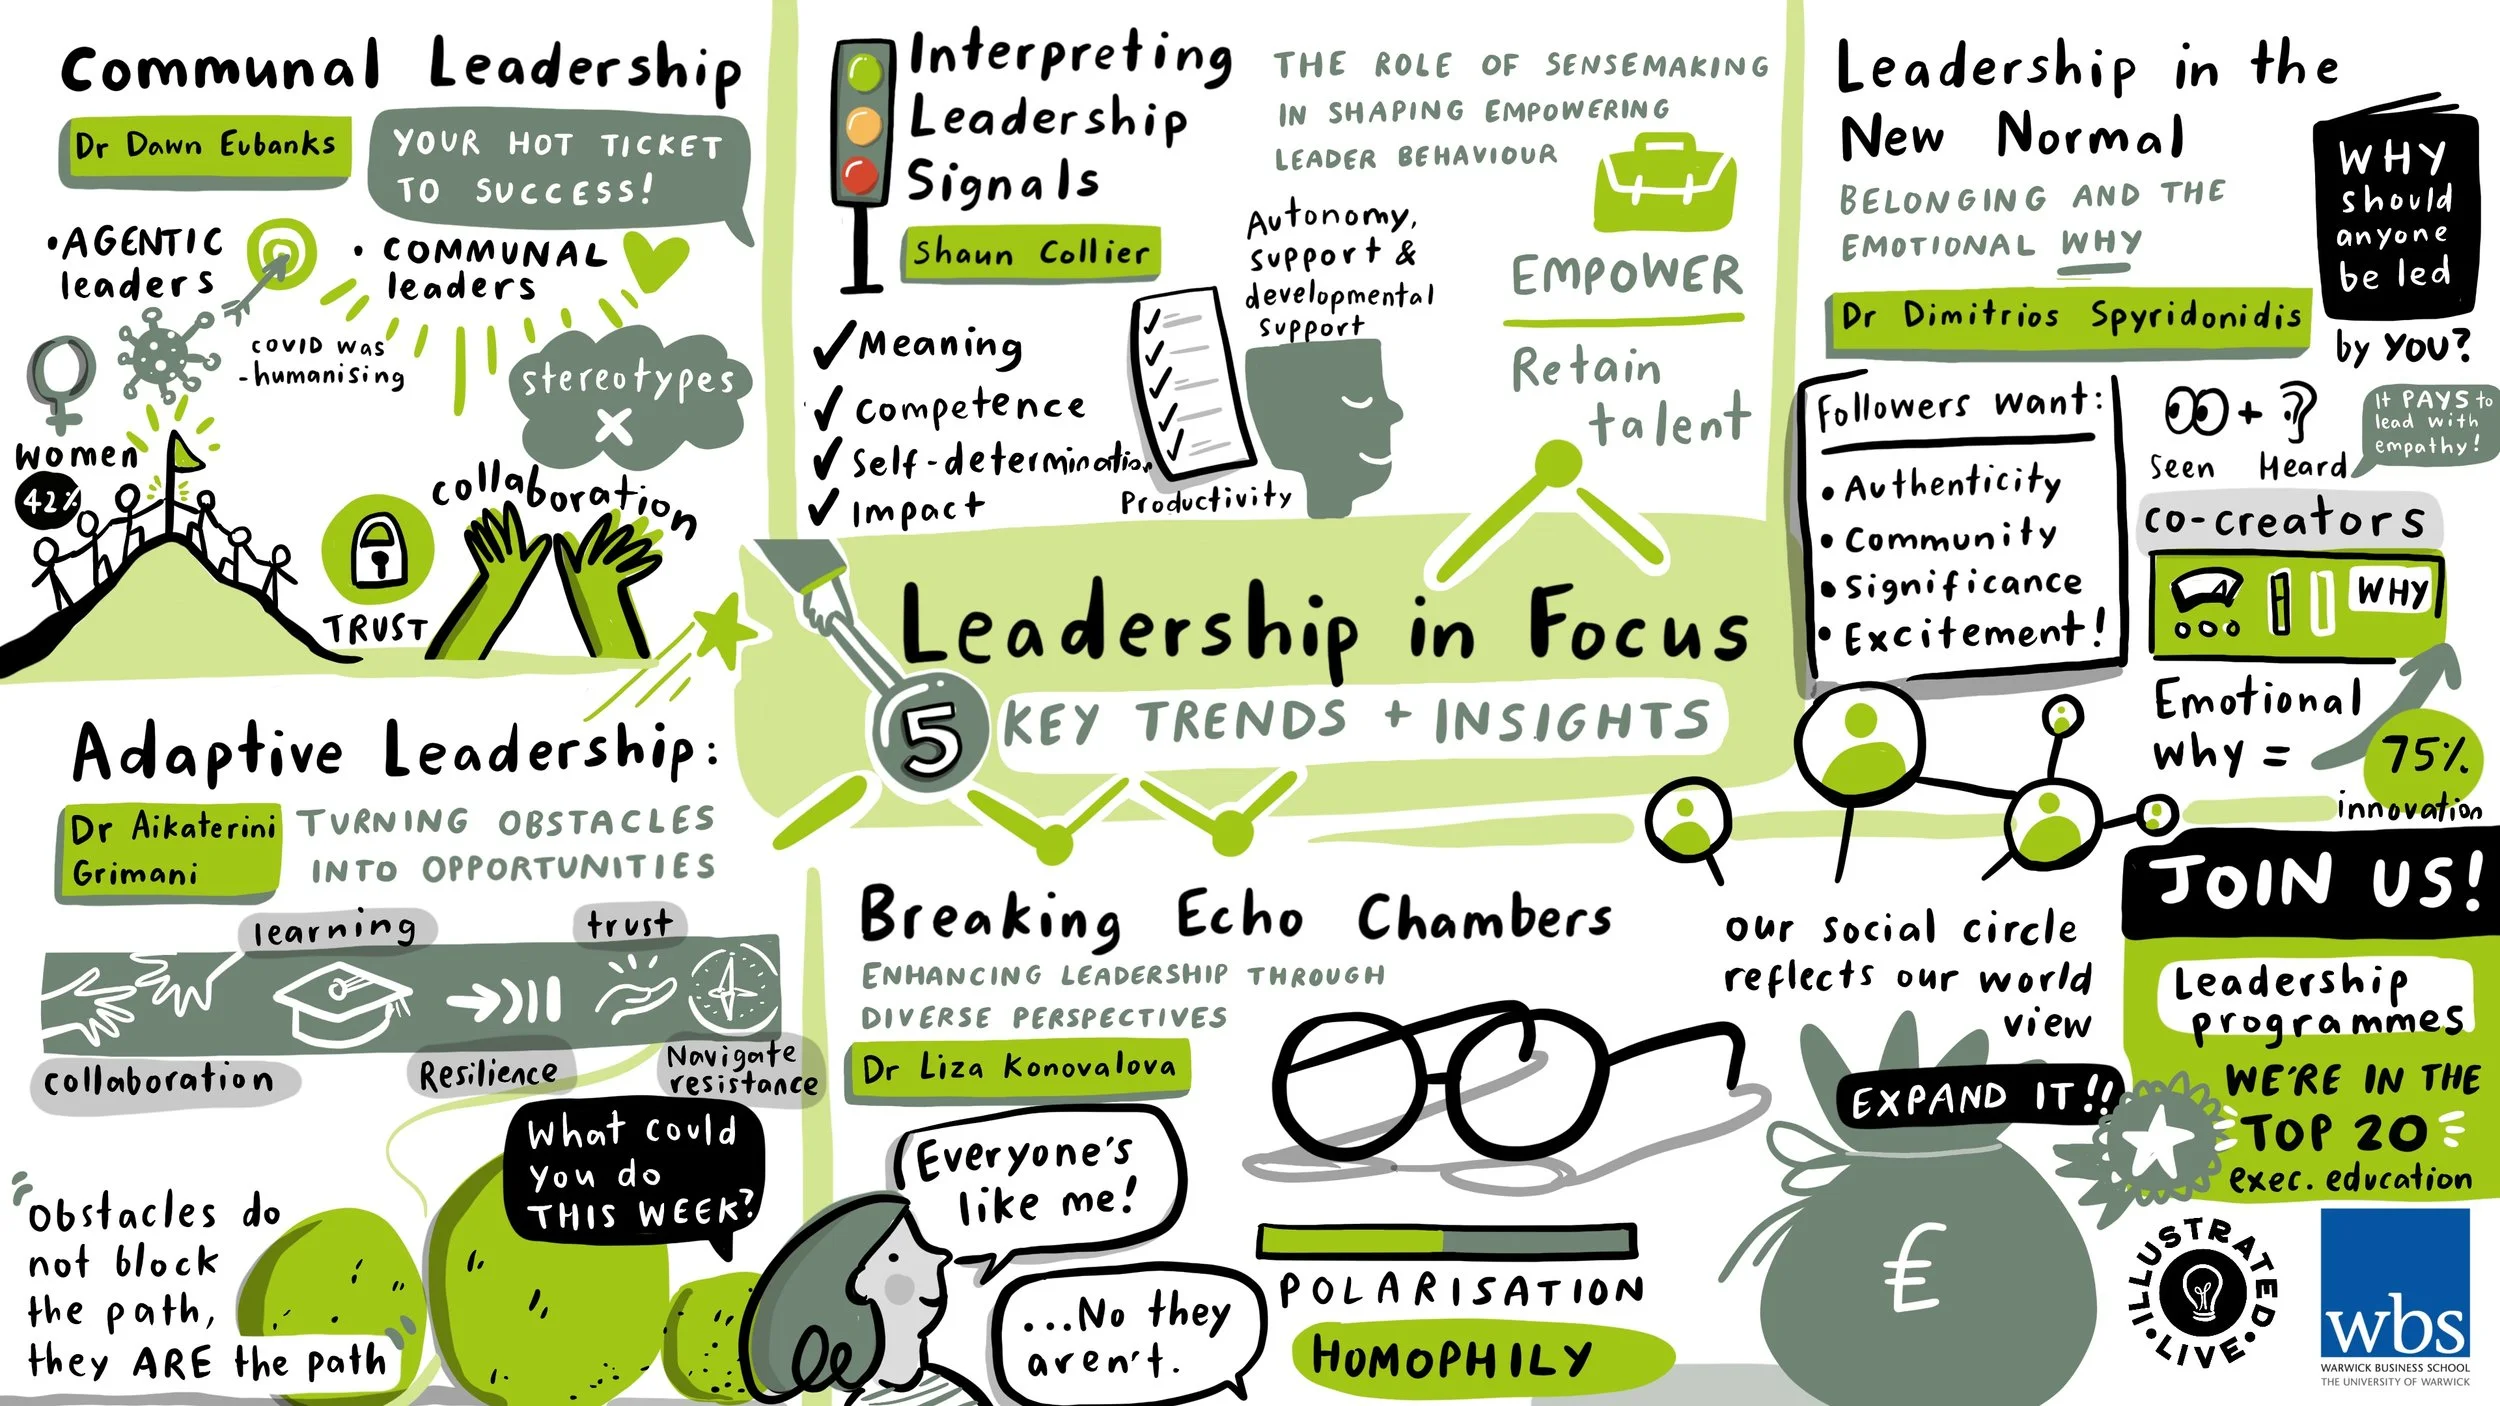 Communal Leadership
Dr Dawn Eubanks
YOUR HOT TICKET
TO SUCCESS!
• AGENTIC
leaders
• COMMUNAL
leaders
COVID was
-humanising
stereotypes
X
women
42%
collaboration
TRUST
Interpreting
Leadership
Signals
Shaun Collier
THE ROLE OF SENSEMAKING
IN SHAPING EMPOWERING
LEADER BEHAVIOUR
Autonomy,
support &
developmental
support
✓ Meaning
✓ competence
✓ Self-determination
✓ Impact
Productivity
EMPOWER
Retain
talent
Leadership in the
New Normal
BELONGING AND THE
EMOTIONAL WHY
Dr Dimitrios Spyridonidis
WHY
should
anyone
be led
by YOU?
Followers want:
• Authenticity
• Community
• Significance
• Excitement!
+
Seen Heard
It PAYS to
lead with
empathy!
co-creators
WHY
Emotional
why =
75%
innovation
Leadership in Focus
5 KEY TRENDS + INSIGHTS
Adaptive Leadership:
Dr Aikaterini
Grimani
TURNING OBSTACLES
INTO OPPORTUNITIES
learning
trust
collaboration
Resilience
Navigate
resistance
What could
you do
THIS WEEK?
"Obstacles do
not block
the path,
they ARE the path"
Breaking Echo Chambers
ENHANCING LEADERSHIP THROUGH
DIVERSE PERSPECTIVES
Dr Liza Konovalova
Everyone's
like me!
...No they
aren't.
POLARISATION
HOMOPHILY
our social circle
reflects our world
view
EXPAND IT!!
£
JOIN US!
Leadership
programmes
WE'RE IN THE
TOP 20
exec. education
ILLUSTRATED.
LIVE•
wbs
WARWICK BUSINESS SCHOOL
THE UNIVERSITY OF WARWICK